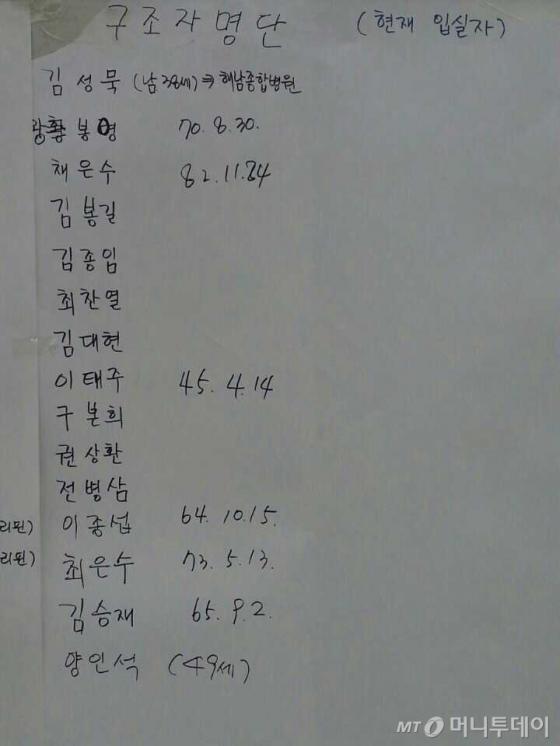 구조자명단 (현재 입실자)
김성묵 (남 38세) ⇒ 해남종합병원
황봉영 70. 8. 30.
채은수 82. 11. 24
김봉길
김종임
최찬열
김대현
이태주 45. 4. 14
구본희
권상환
전병삼
리원) 이종섭 64. 10. 15.
리원) 최은수 73. 5. 13.
김승재 65. 9. 2.
양인석 (49세)
MT 머니투데이